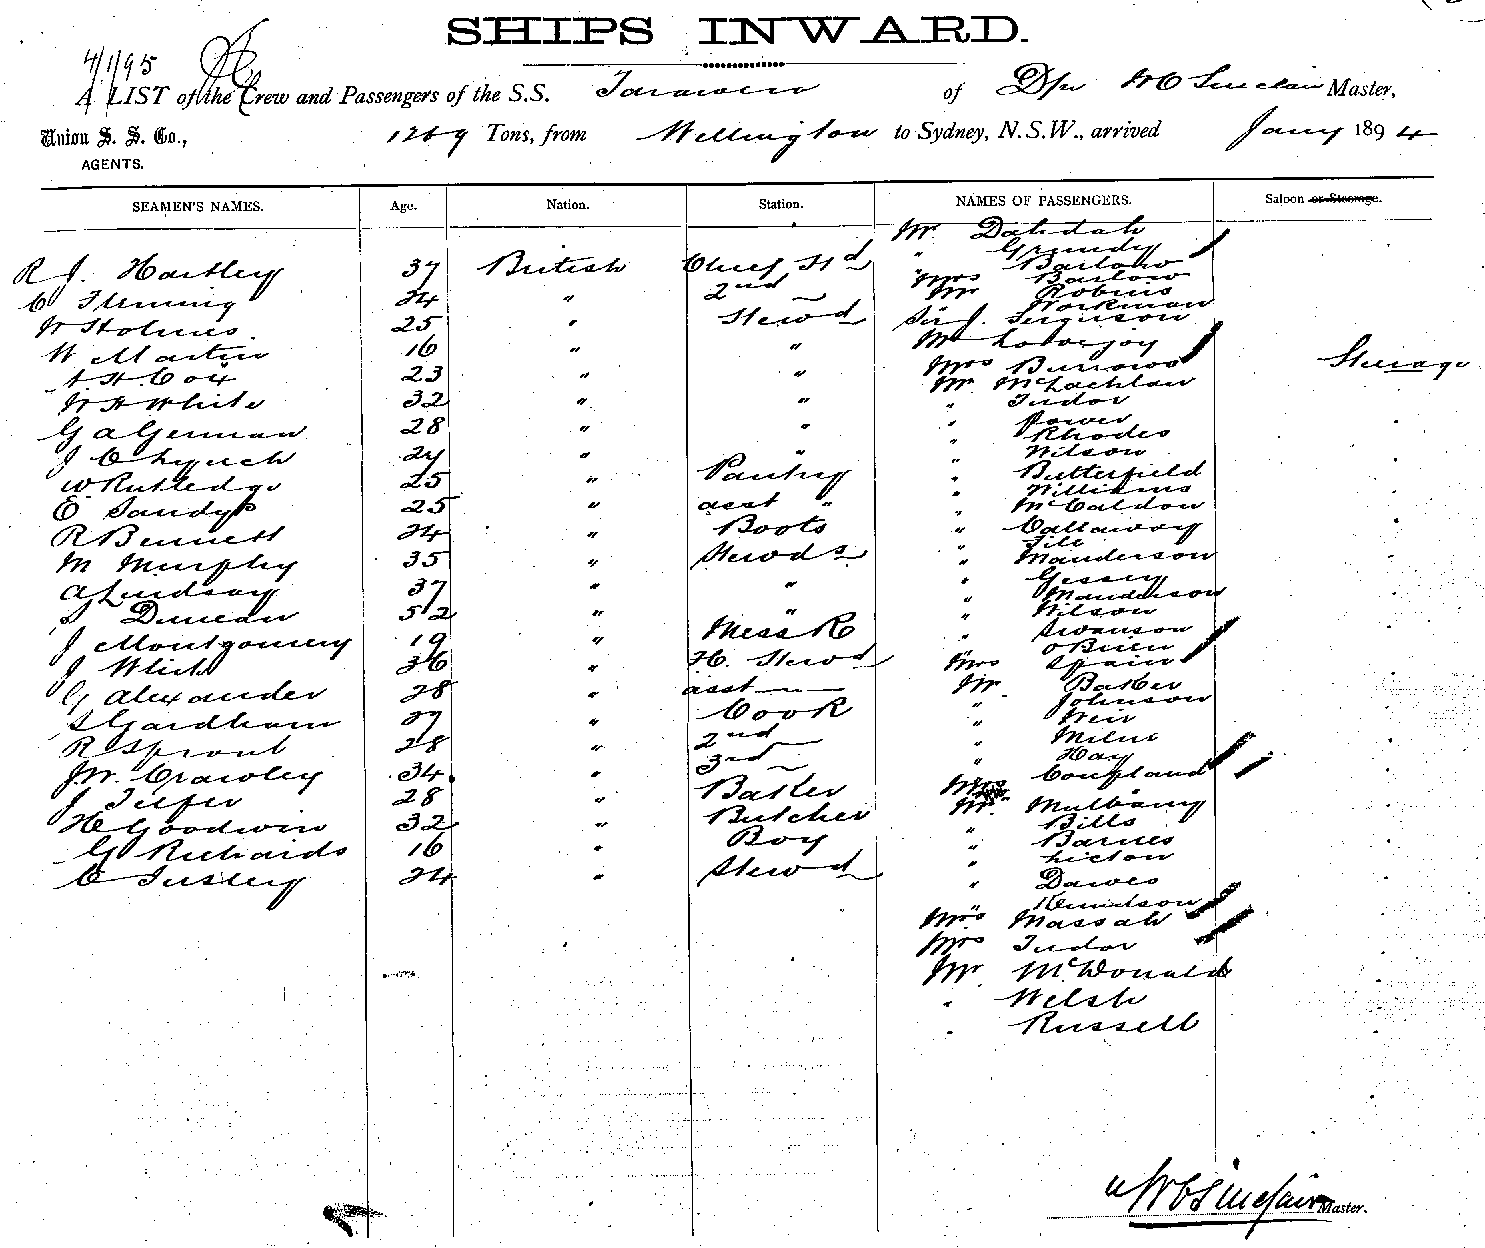 SHIPS INWARD.
4/1/95
A LIST of the Crew and Passengers of the S.S. Tarawera of Dn W C Sinclair Master,
Union S. S. Co., 1269 Tons, from Wellington to Sydney, N.S.W., arrived Jany 1894
AGENTS.
SEAMEN'S NAMES. Age. Nation. Station. NAMES OF PASSENGERS. Saloon or Steerage.
R J. Hartley 37 British Chief Std
C Fleming 24 " 2nd —
W Holmes 25 " Stewd
W Martin 16 " "
A H Cox 23 " "
W H White 32 " "
G A German 28 " "
J C Lynch 24 " "
W Rutledge 25 " Pantry
E Sandys 25 " asst "
R Bennett 24 " Boots
M Murphy 35 " Stewds
A Lindsay 37 " "
Duncan 52 " "
J Montgomery 19 " Mess R
J White 36 " F.C. Stewd
G Alexander 28 " asst —"—
S Gardham 27 " Cook
R Sprout 28 " 2nd —
J W. Crawley 34 " 3rd —
J Telfer 28 " Baker
H Goodwin 32 " Butcher
G Richards 16 " Boy
C Tusley 24 " Stewd
Mr Dahdah
" Grundy
Mr Barlow
Mrs Barlow
Mr Robins
Workman
Sir J. Ferguson
Mr Lovejoy
Mrs Burrows Steerage
Mr McLachlan
" Tudor
" Power
" Rhodes
" Wilson
" Butterfield
" Williams
" McCaldon
" Callaway
" File
" Manderson
" Gessey
" Manderson
" Wilson
" Swanson
" O'Brien
Mrs Spain
Mr Baker
" Johnson
" Weir
" Milne
" Hay
Mrs Coupland
Mr Mulbany
" Bills
" Barnes
" Licton
" Dawes
" Kenidson
Mrs Massah
Mrs Tudor
Mr McDonald
" Welsh
" Russell
W C Sinclair Master.